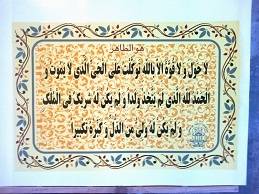 هو الطاهر
لا حول و لا قوة الا بالله توكلت علی الحی الذی لا یموت و
الحمد لله الذی لم یتخذ ولدا و لم یکن له شریک فی الملک
و لم یکن له ولی من الذل و کبره تکبیرا